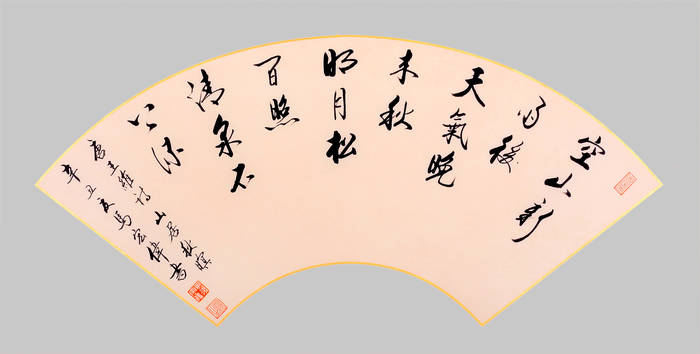 空山新
雨後
天氣晚
来秋
明月松
间照
清泉石
上流
唐王維詩 山居秋暝
辛丑夏馬宏偉書